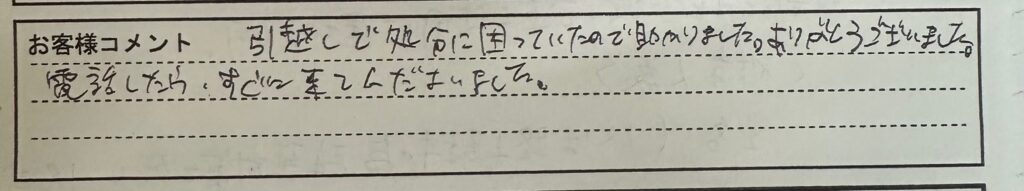 お客様コメント 引越しで処分に困っていたので助かりました。ありがとうございました。
電話したら、すぐに来てくださいました。